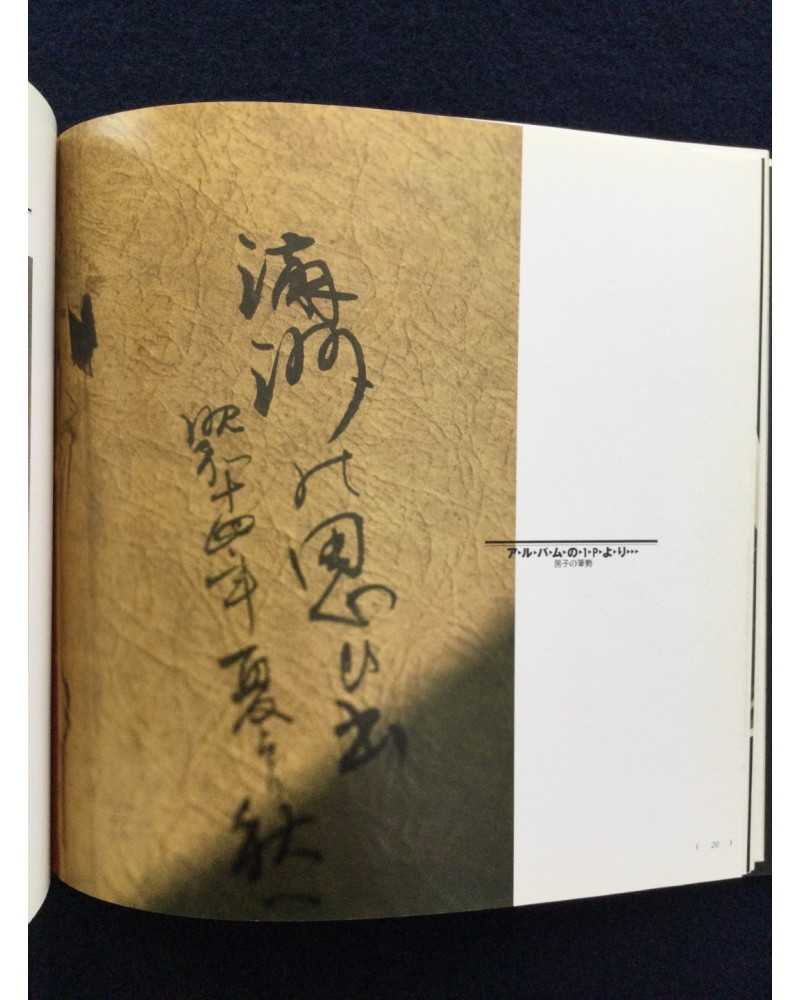 満洲の思ひ出
昭和十四年夏より秋へ
ア・ル・バ・ム・の・1・P・よ・り・・・
房子の筆勢
( 20 )